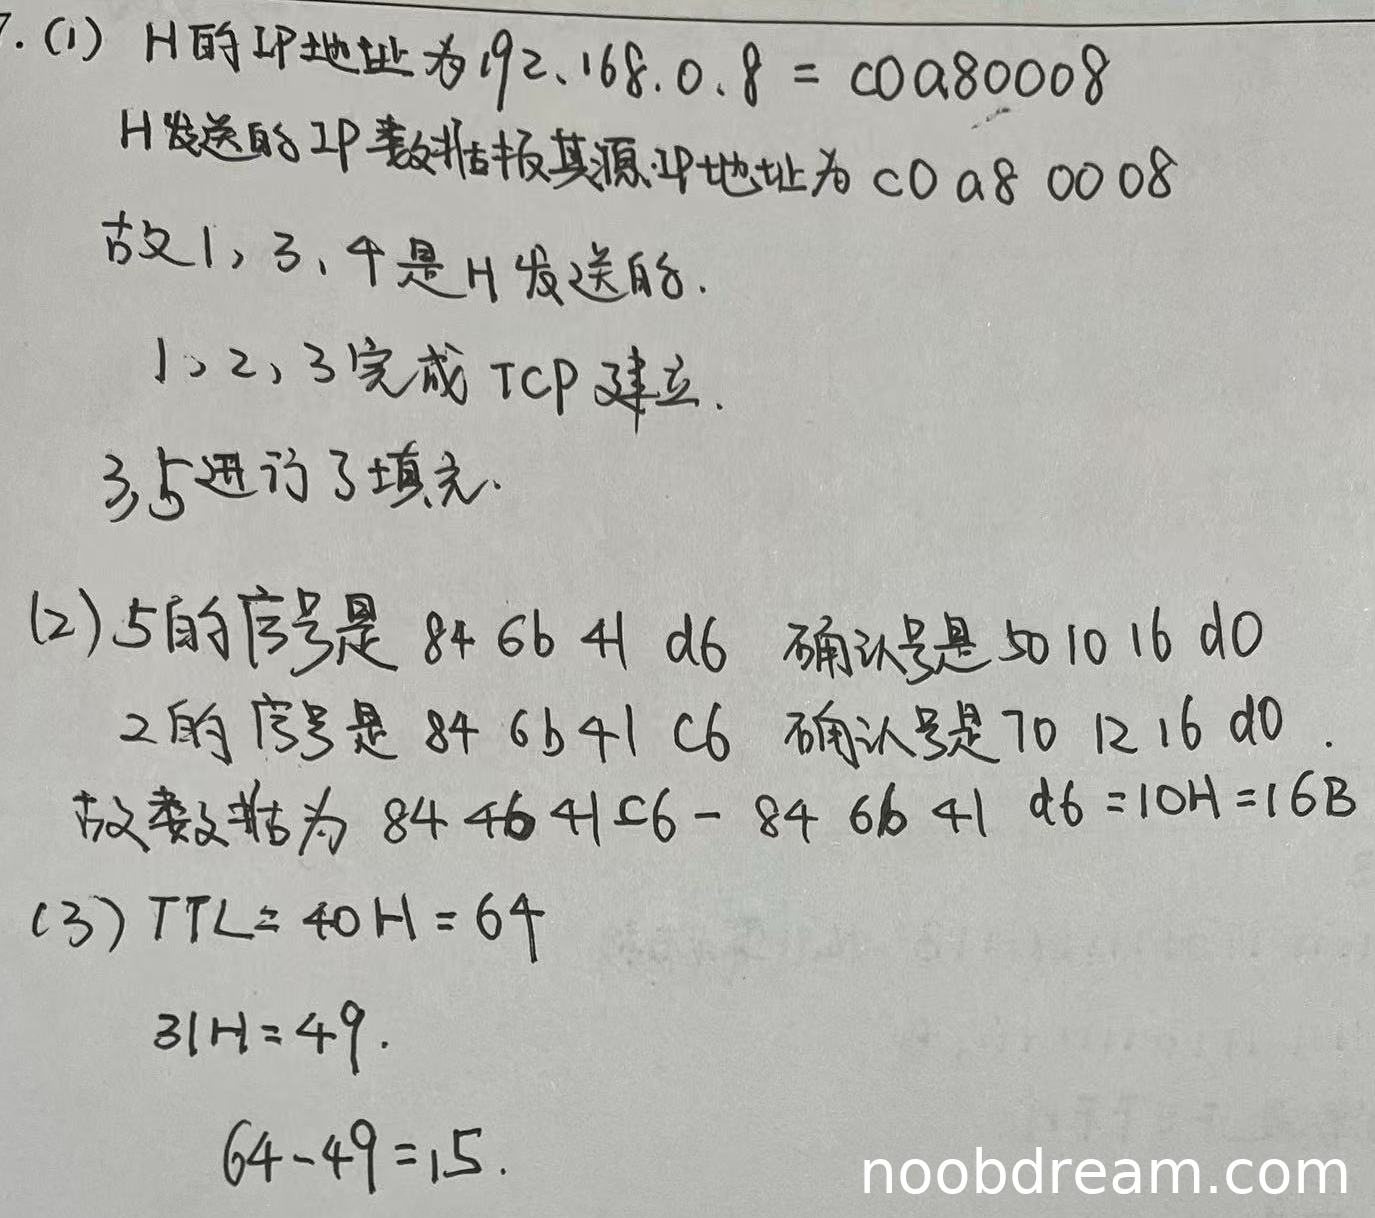 7.(1) H的IP地址为192、168.0、8 = c0a80008
H发送的IP数据报其源IP地址为 c0 a8 00 08
故1,3、4是H发送的.
1、2、3完成TCP建立.
3,5进行了填充.
(2) 5的序号是 84 6b 41 d6 确认号是 50 10 16 d0
2的序号是 84 6b 41 c6 确认号是 70 12 16 d0 .
故数据为 84 46 41 c6 - 84 6b 41 d6 = 10H = 16B
(3) TTL = 40H = 64
31H = 49.
64-49=15.
noobdream.com